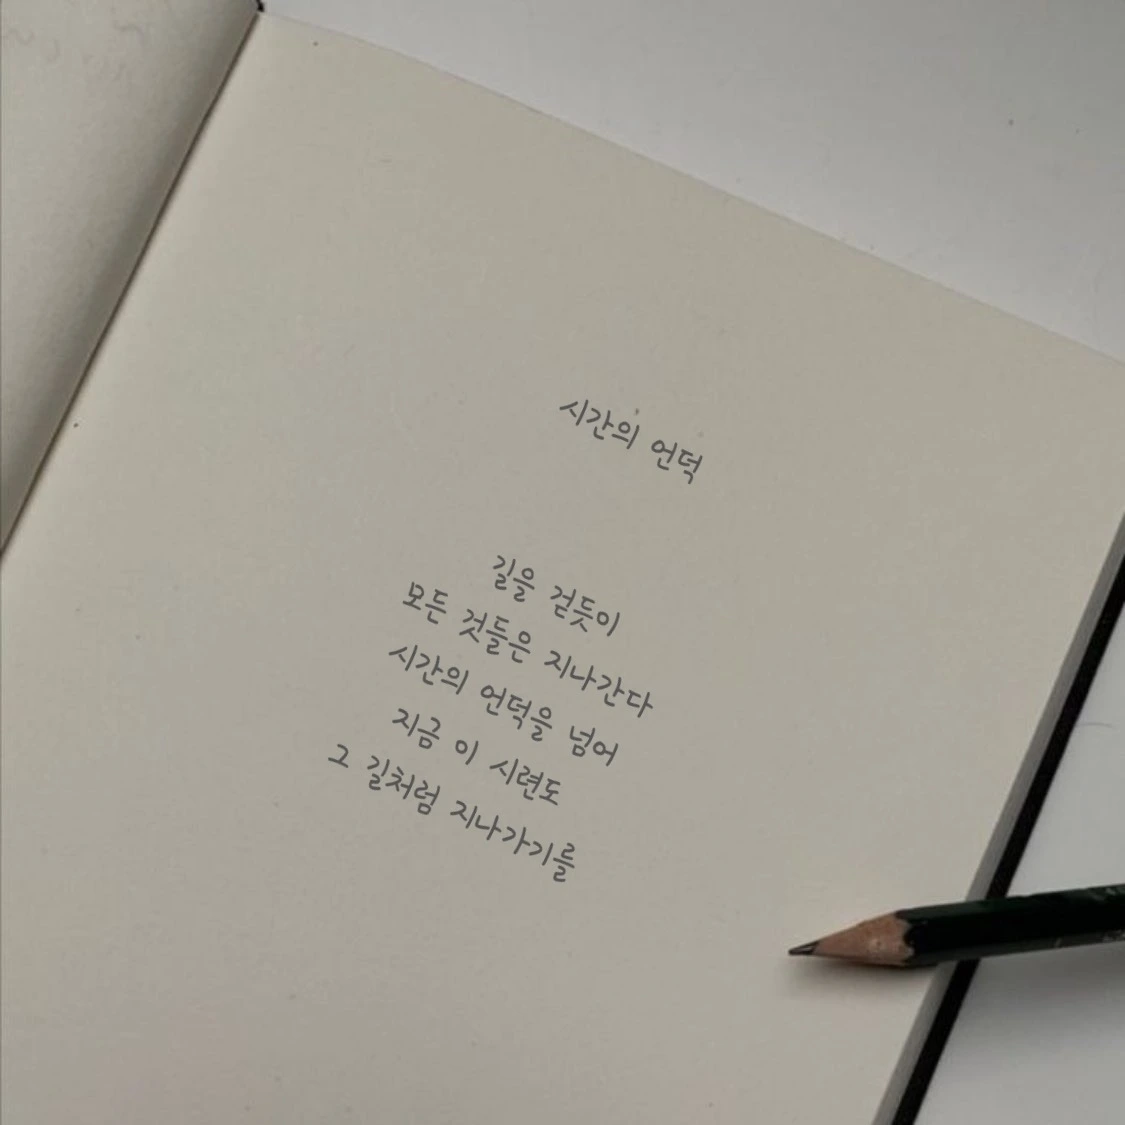 시간의 언덕
길을 걷듯이
모든 것들은 지나간다
시간의 언덕을 넘어
지금 이 시련도
그 길처럼 지나가기를